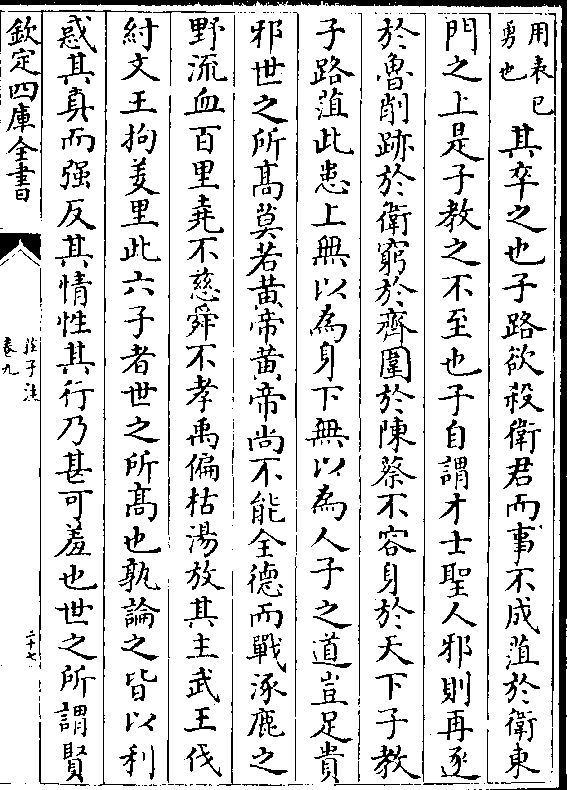 用表己
勇也
其卒之也子路欲殺衛君而事不成菹於衛東
門之上是子教之不至也子自謂才士聖人邪則再逐
於魯削跡於衛窮於齊圍於陳蔡不容身於天下子教
子路菹此患上無以為身下無以為人子之道豈足貴
邪世之所髙莫若黄帝黄帝尚不能全德而戰涿鹿之
野流血百里堯不慈舜不孝禹偏枯湯放其主武王伐
紂文王拘羑里此六子者世之所髙也孰論之皆以利
惑其真而强反其情性其行乃甚可羞也世之所謂賢
欽定四庫全書
莊子注
卷九
二十七